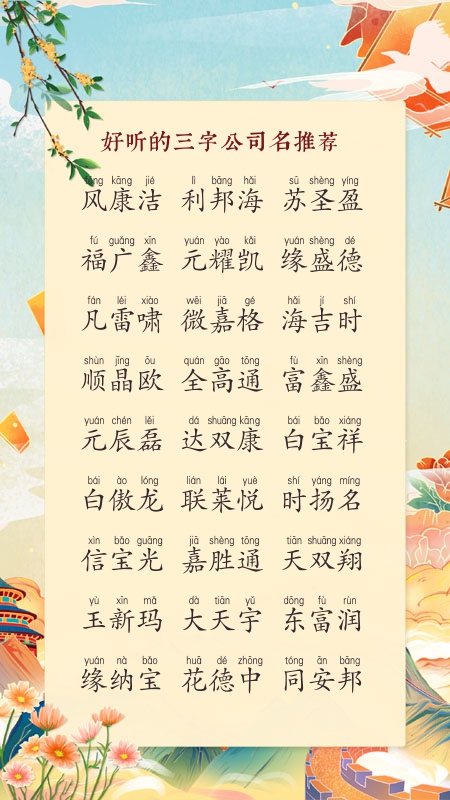 好听的三字公司名推荐
fēng kāng jié lì bāng hǎi sū shèng yíng
风康洁 利邦海 苏圣盈
fú guǎng xīn yuán yào kǎi yuán shèng dé
福广鑫 元耀凯 缘盛德
fán léi xiào wēi jiā gé hǎi jí shí
凡雷啸 微嘉格 海吉时
shùn jīng ōu quán gāo tōng fù xīn shèng
顺晶欧 全高通 富鑫盛
yuán chén lěi dá shuāng kāng bái bǎo xiáng
元辰磊 达双康 白宝祥
bái ào lóng lián lái yuè shí yáng míng
白傲龙 联莱悦 时扬名
xìn bǎo guāng jiā shèng tōng tiān shuāng xiáng
信宝光 嘉胜通 天双翔
yù xīn mǎ dà tiān yǔ dōng fù rùn
玉新玛 大天宇 东富润
yuán nà bǎo huā dé zhōng tóng ān bāng
缘纳宝 花德中 同安邦